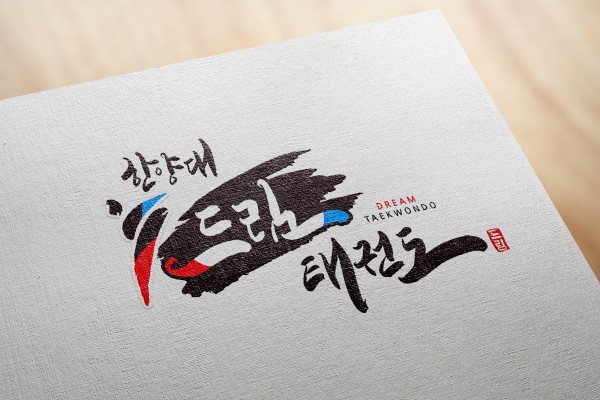 한양대
드림
DREAM
TAEKWONDO
태권도